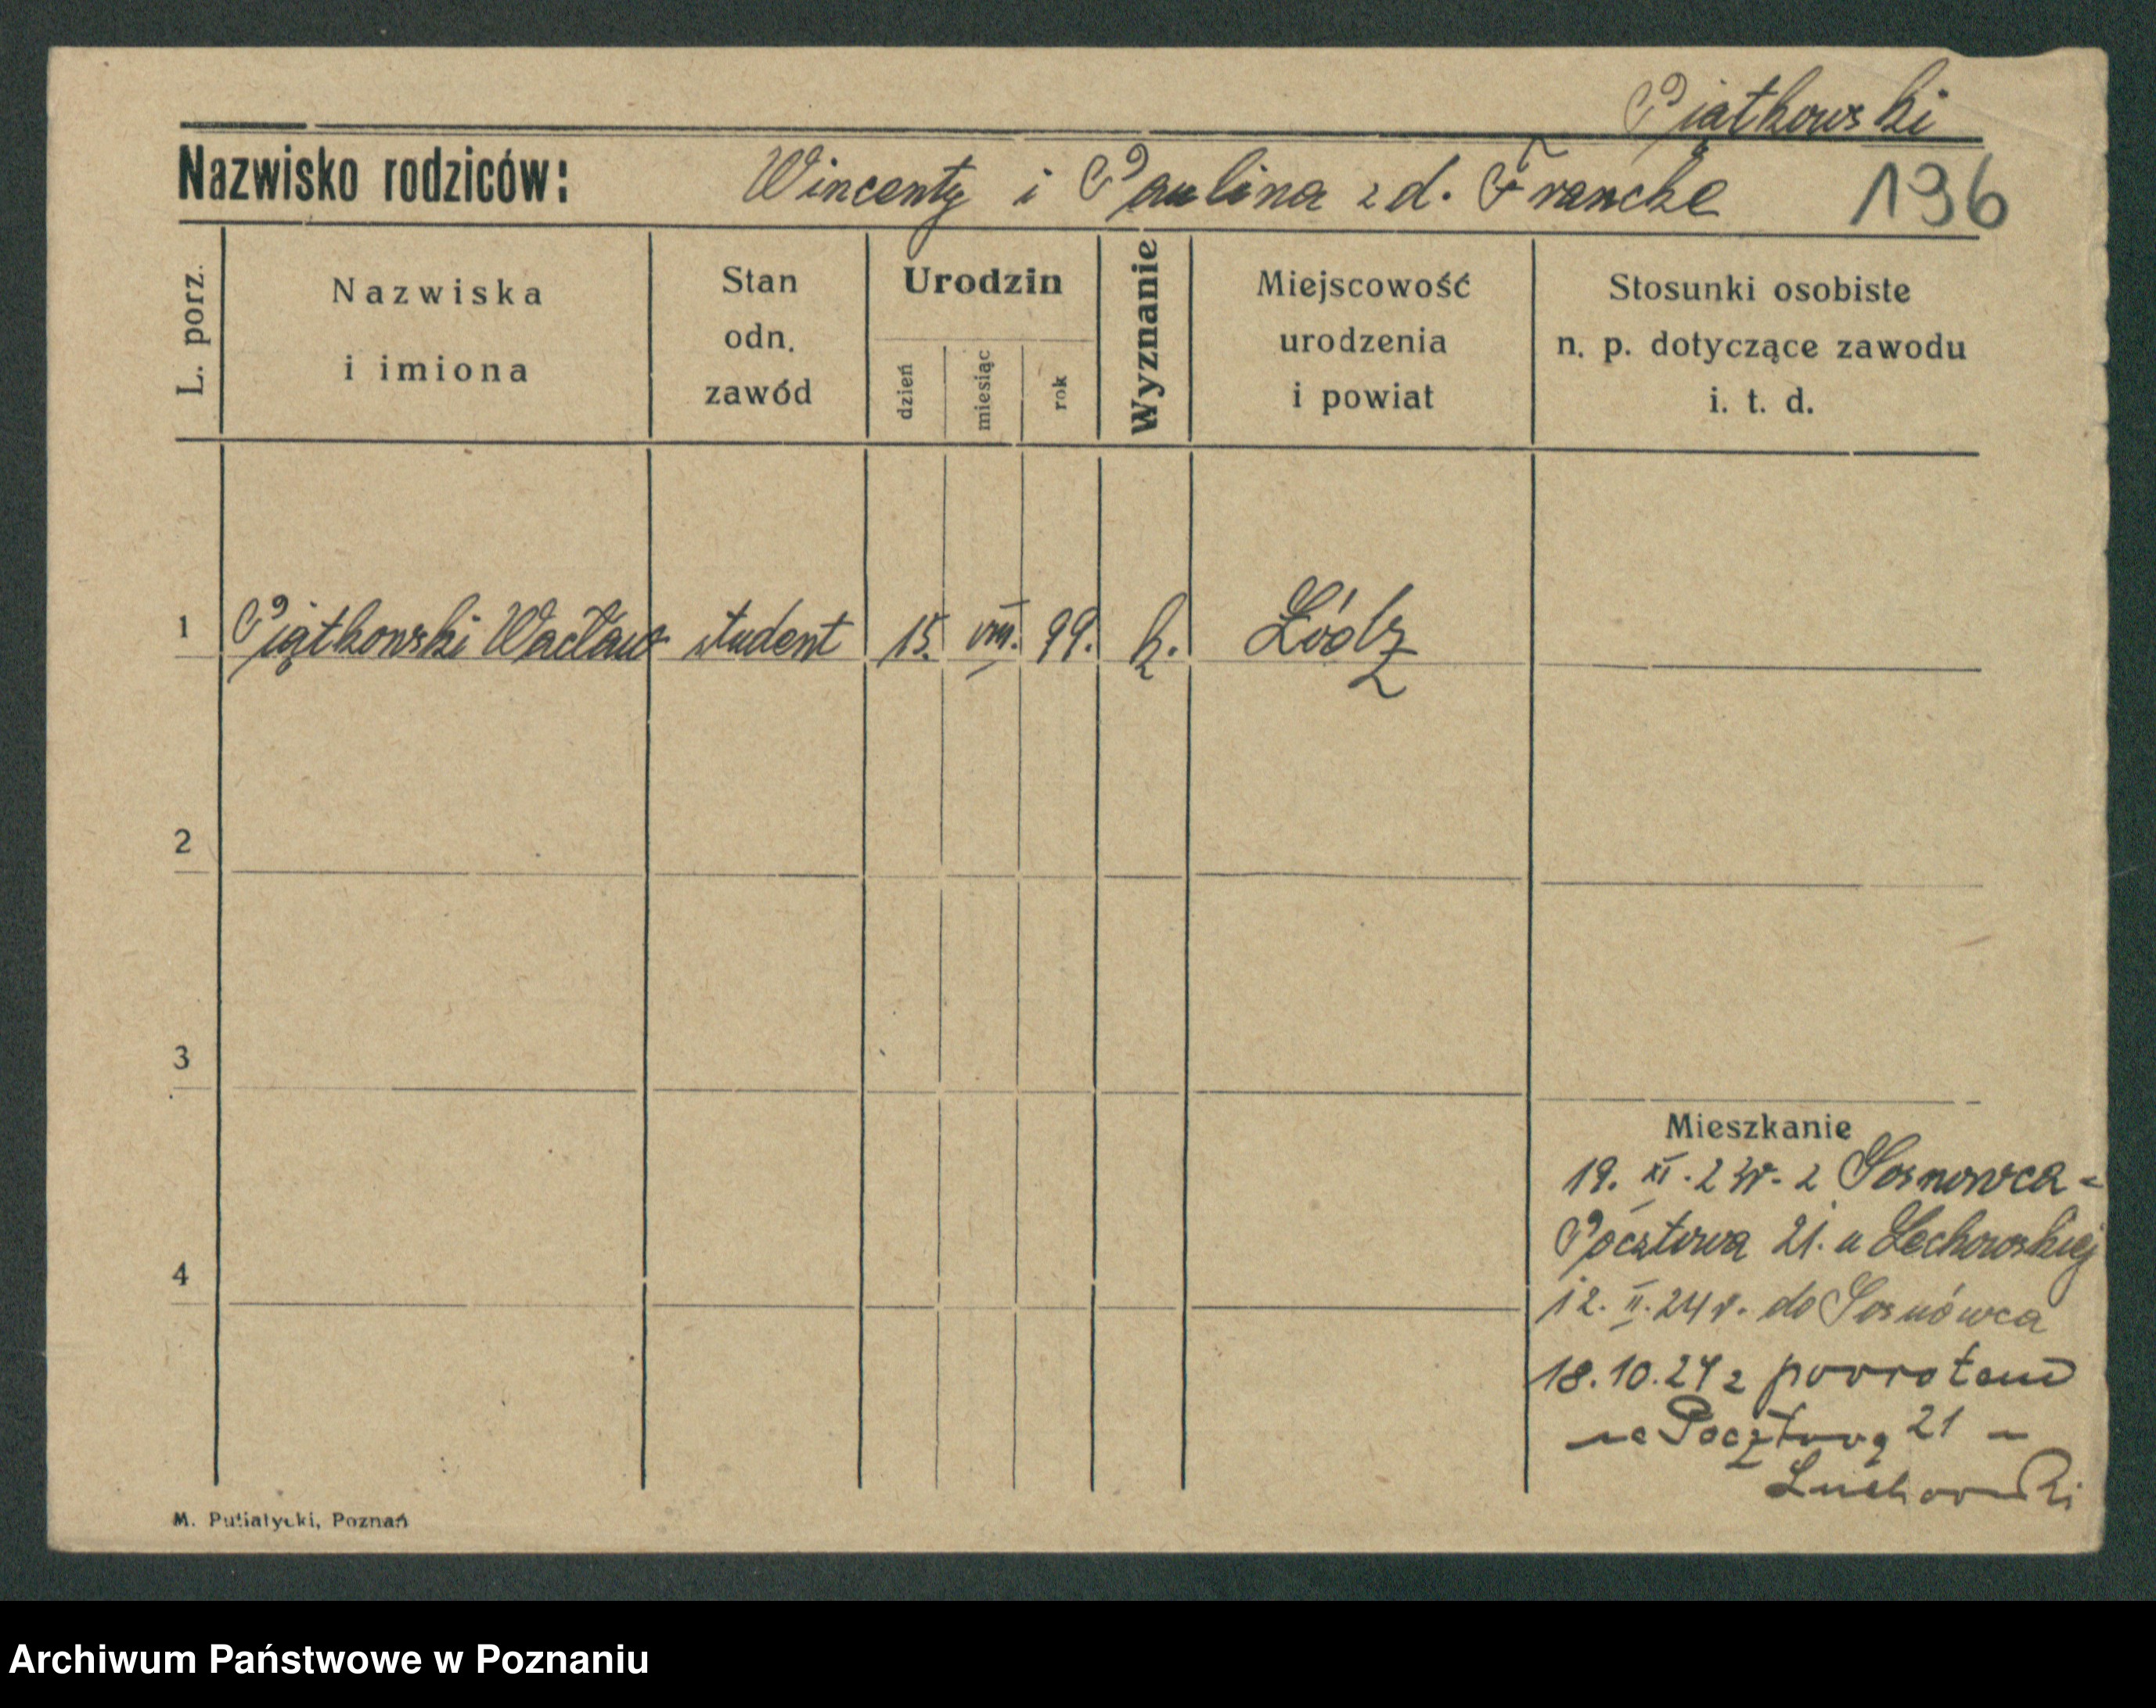 Piątkowski
Nazwisko rodziców: Wincenty i Paulina z d. Francke 196
L. porz.
Nazwiska
i imiona
Stan
odn.
zawód
Urodzin
dzień
miesiąc
rok
Wyznanie
Miejscowość
urodzenia
i powiat
Stosunki osobiste
n. p. dotyczące zawodu
i. t. d.
1 Piątkowski Wacław student 15. VIII. 99. k. Łódz
2
3
4
Mieszkanie
19. XI. 23r. z Sosnowca -
Pocztowa 21. u Lechowskiej
12. II. 24 r. do Sosnówca
18.10.24 z powrotem
na Pocztową 21 -
M. Putiatycki, Poznań
Archiwum Państwowe w Poznaniu